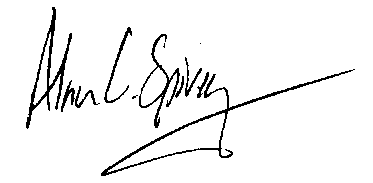 Alan C. Spivey